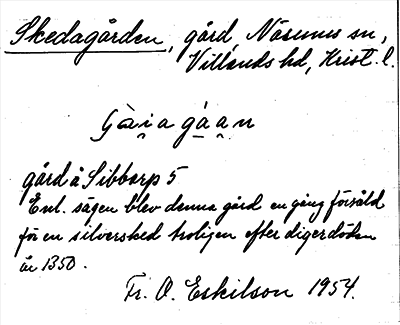 Skedagården, gård, Näsums sn,
Villands hd, Krist. l.
gård å Sibborp 5
Enl. sägen blev denna gård en gång försåld
för en silversked troligen efter digerdöden
år 1350.
Fr. O. Eskilson 1954.